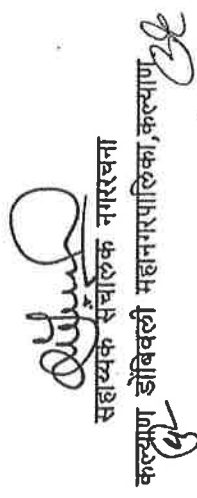 सहाय्यक संचालक नगररचना
कल्याण डोंबिवली महानगरपालिका,कल्याण